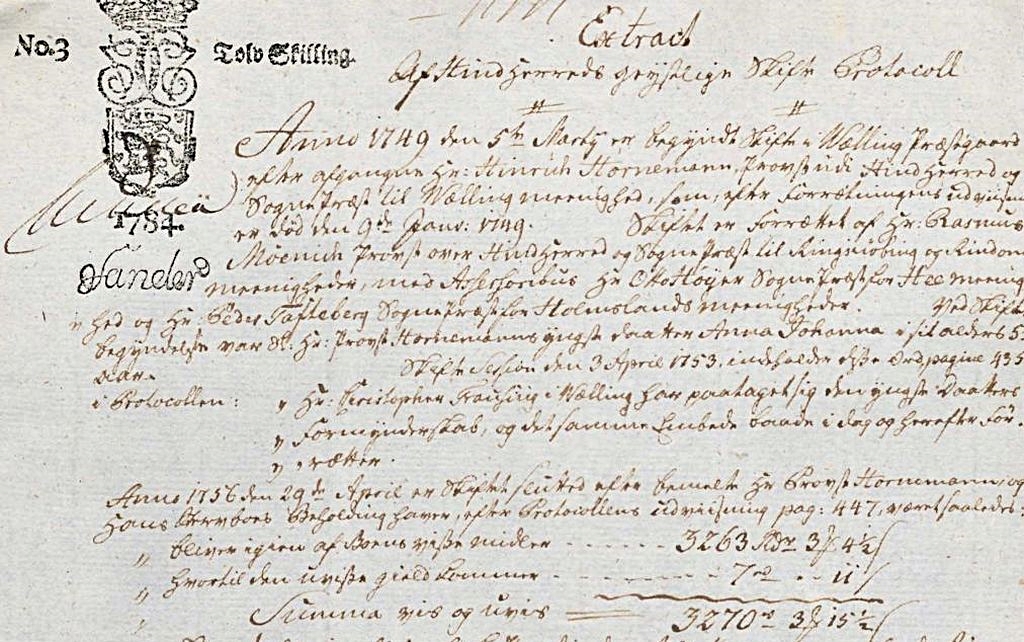 Extract
No. 3 Tolv Skilling.
Af Hind Herreds geystlige Skifte Protocoll
Anno 1749 den 5te Marty er begyndt Skifte i Wælling Præstegaard
efter afgangne Hr: Hinrich Hornemann, Provst udi Hind Herred og
Sogne Præst til Wælling meenighed, som, efter Forretningens udviisning
1784.
er død den 9de Janv: 1749. Skiftet er forrettet af Hr: Rasmus
Moenich Provst over Hind Herred og Sogne Præst til Ringkiøbing og Rindom
meenigheder, med Assessoribus Hr Otto Høyer Sogne Præst for Hee meenig-
hed og Hr: Peder Tafteberg Sogne præst for Holmslands meenigheder. Ved Skifte
begyndelse var Hr: Provst Hornemanns yngste daatter Anna Johanna i sit alders 5te
aar. Skifte Session den 3 April 1753. indeholder disse Ord, pagine 435
i Protocollen: Hr: Christopher i Wælling har paataget sig den yngste Daatters
Formynderskab, og det samme Embede baade i dag og herefter For-
rætter.
Anno 1756 den 29de April er Skiftet slutted efter bemelte Hr Provst Hornemann, og
Hans Beholding haver, efter Protocollens udviisning pag: 447, været saaledes:
bliver igien af Boens visse midler - - - - - 3263 Rdr 3 ß 4½
hvortil den uvisse gield kommer - - - - - 7 - 11
Summa vis og uvis = 3270 3 15½